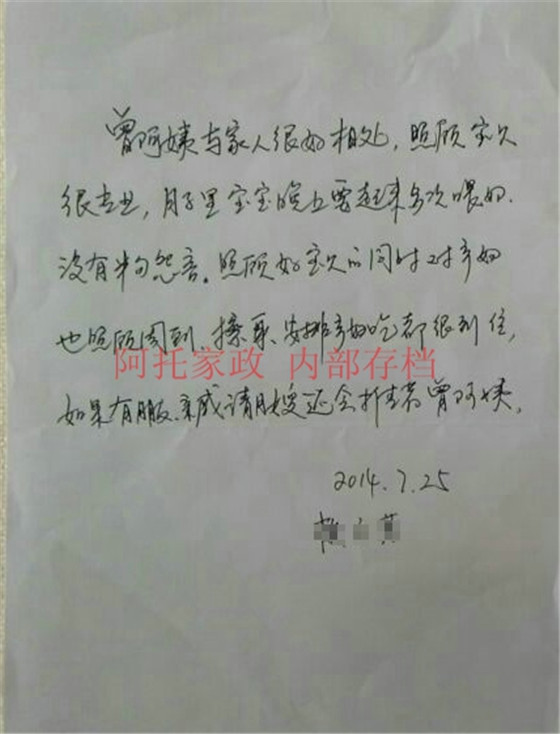 曾阿姨与家人很好相处,照顾宝宝
很专业,月子里宝宝晚上要起来多次喂奶.
没有半句怨言。照顾好宝宝的同时对产妇
也照顾周到、擦身、安排产妇吃都很到位,
阿托家政 内部存档
如果有朋友、亲戚请月嫂还会推荐曾阿姨,
2014.7.25